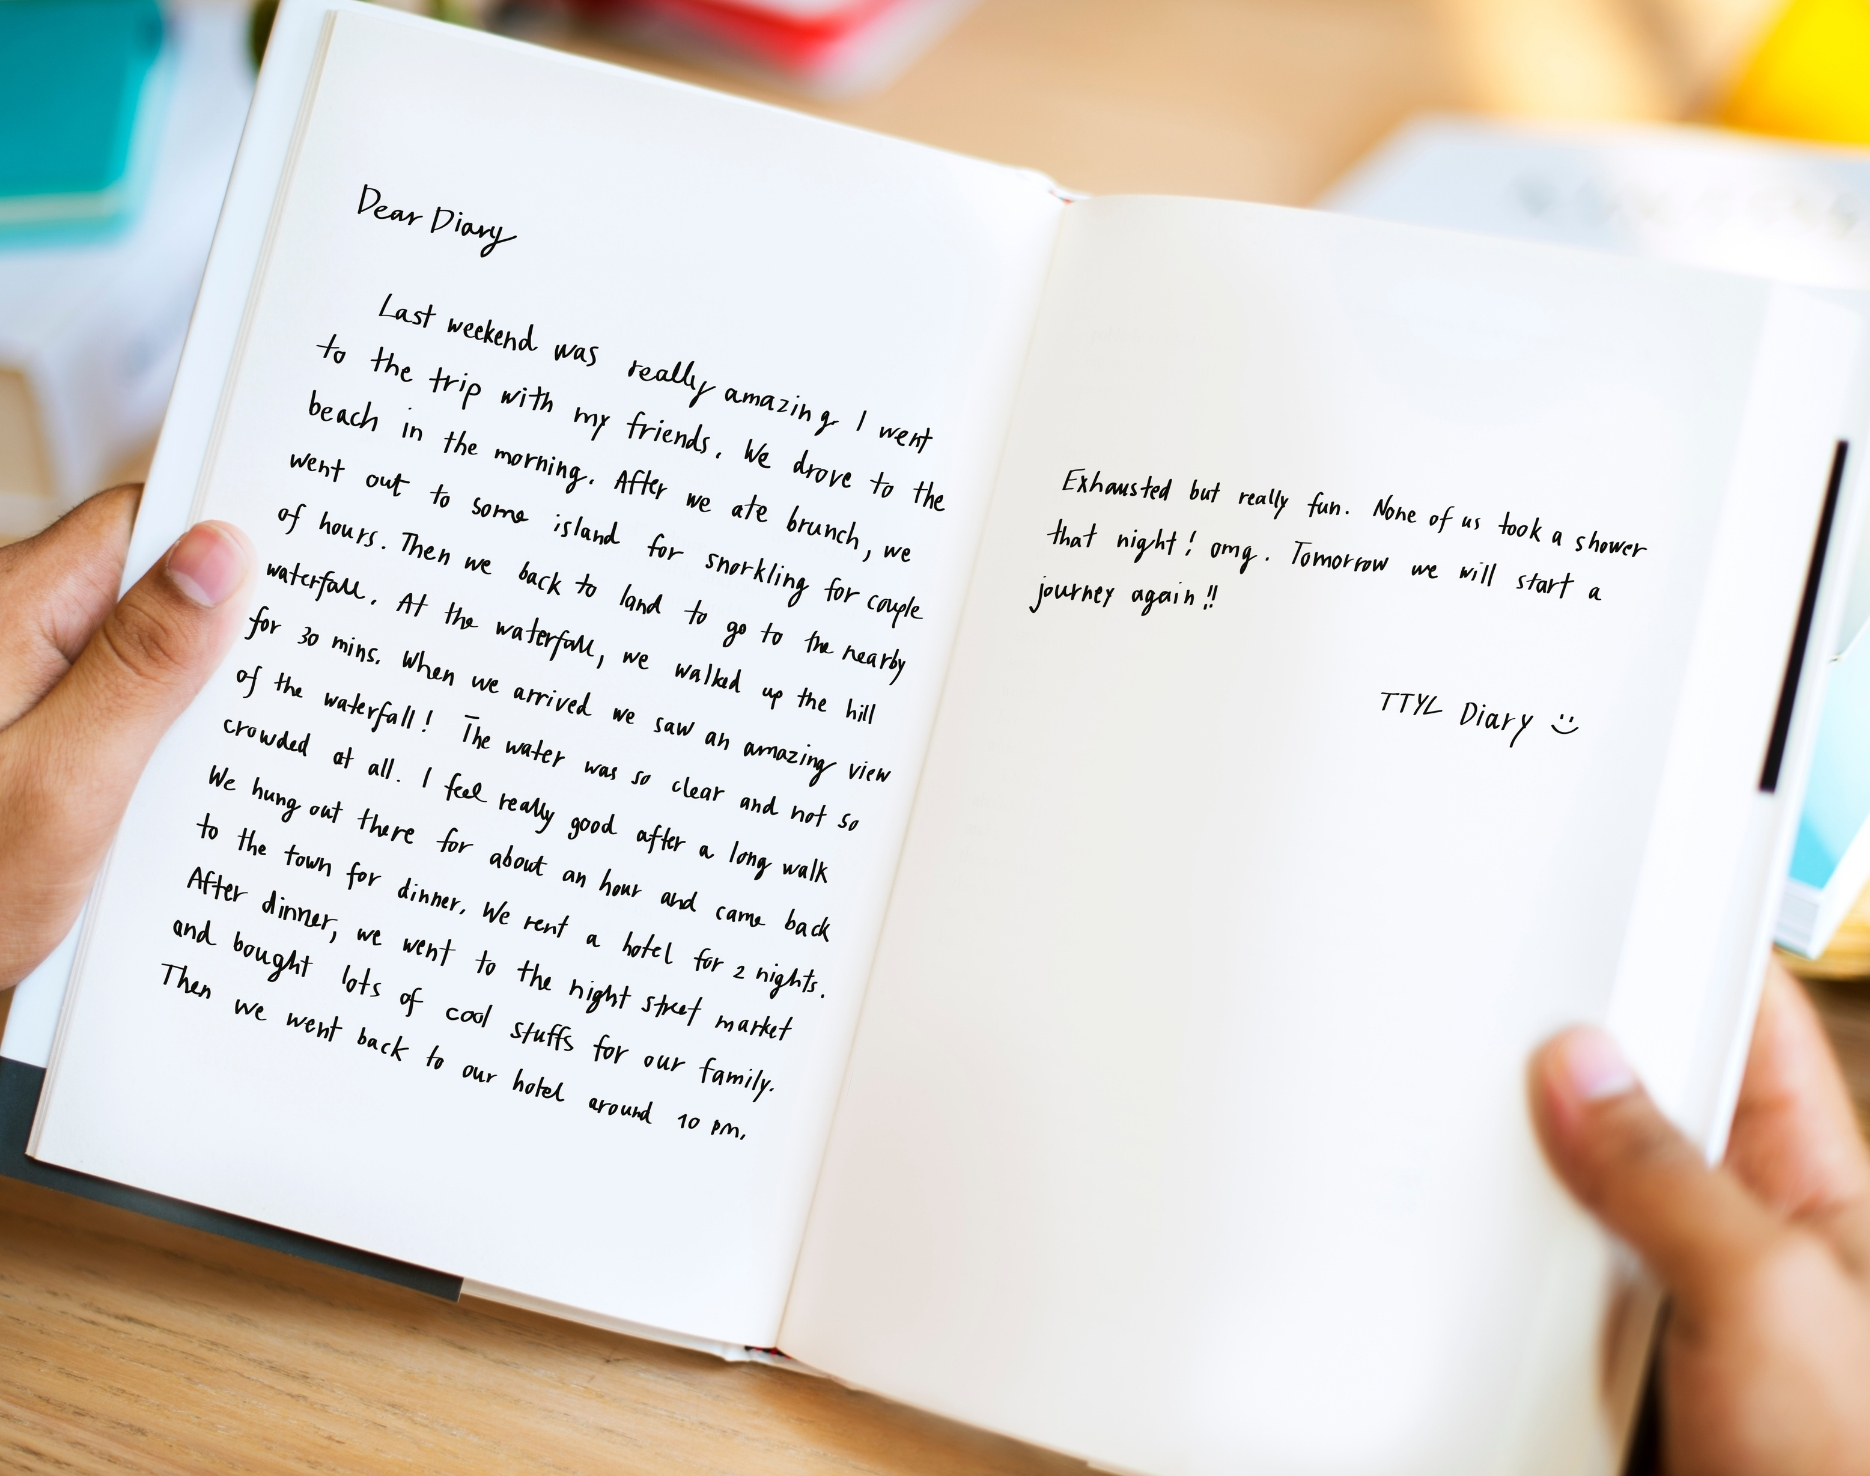 Dear Diary
Last weekend was really amazing I went
to the trip with my friends. We drove to the
beach in the morning. After we ate brunch, we
went out to some island for snorkling for couple
of hours. Then we back to land to go to the nearby
waterfall. At the waterfall, we walked up the hill
for 30 mins. When we arrived we saw an amazing view
of the waterfall! The water was so clear and not so
crowded at all. I feel really good after a long walk
We hung out there for about an hour and came back
to the town for dinner. We rent a hotel for 2 nights.
After dinner, we went to the night street market
and bought lots of cool stuffs for our family.
Then we went back to our hotel around 10 pm.
Exhausted but really fun. None of us took a shower
that night! omg. Tomorrow we will start a
journey again!!
TTYL Diary